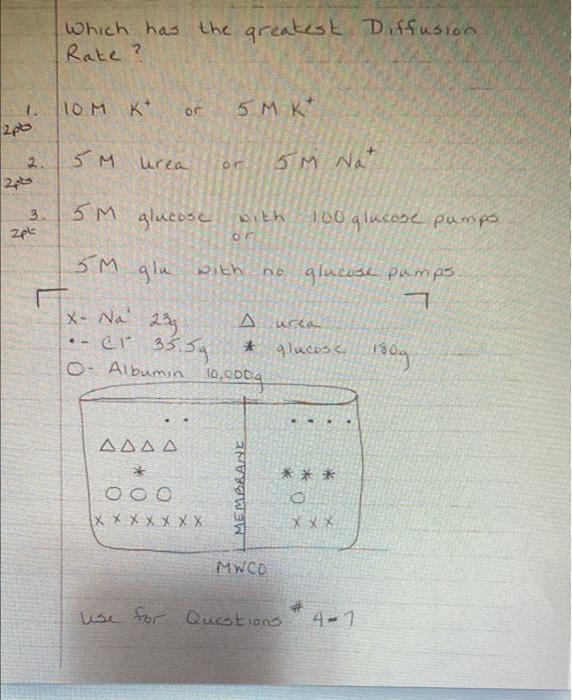 Which has the greatest Diffusion
Rate?
1. 10 M K+ or 5 M K+
2pts
2. 5 M urea or 5 M Na+
2pts
3. 5 M glucose with 100 glucose pumps
2pt
or
5M glu with no glucose pumps.
X- Na+ 23g Δ urea
•- Cl- 35.5g * glucose 180g
O- Albumin 10,000g
• • • • • •
Δ Δ Δ Δ
* * * *
O O O O
X X X X X X X X X X
MEMBRANE
MWCO
use for Questions # 4-7